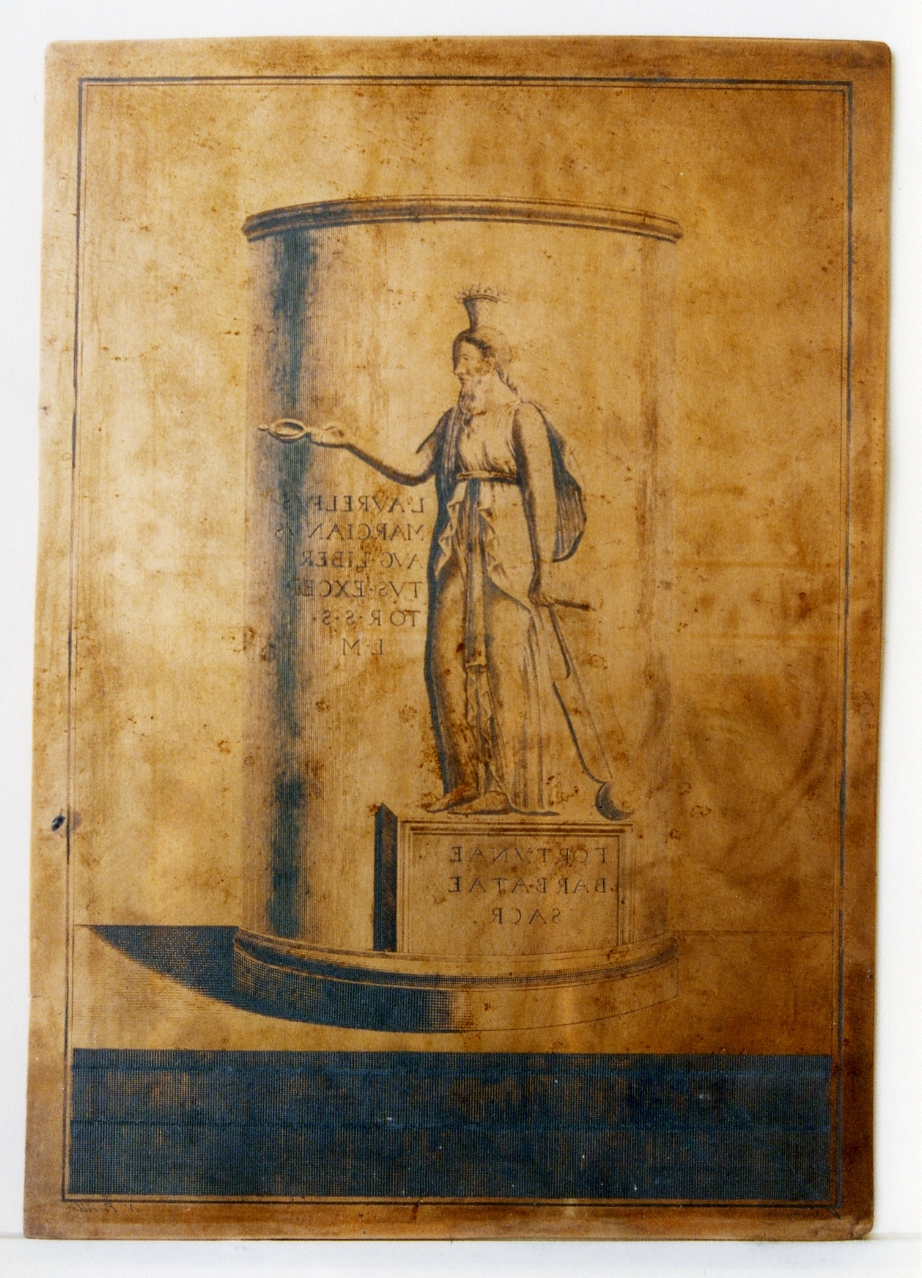 L·AVRELIVS
MARCIANVS
AVG·LIBER
TVS·EXCEP
TOR·S·S·
L·M
FORTVNAE
BARBATAE
SACR.